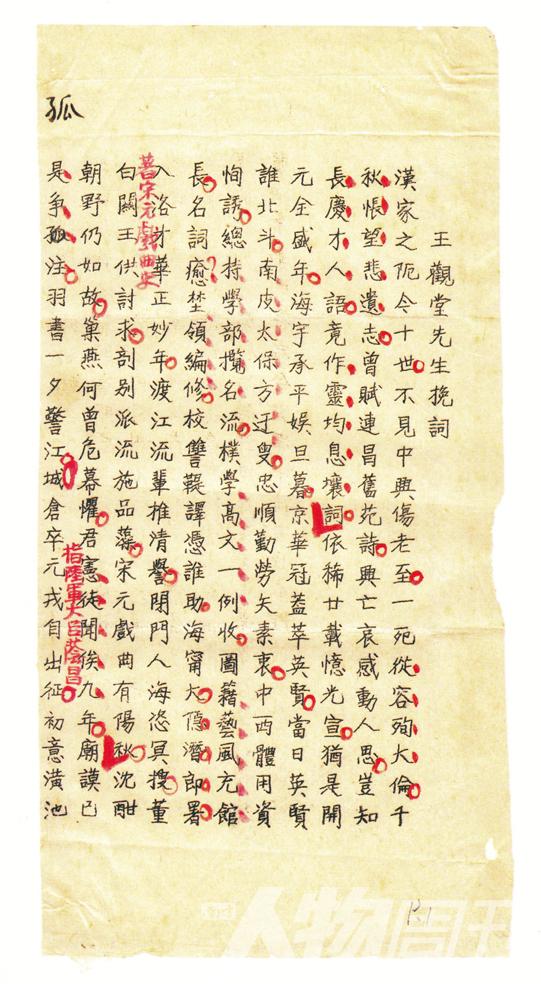 王觀堂先生挽詞
漢家之阨今十世不見中興傷老至一死從容殉大倫千
秋悵望悲遺志曾賦連昌舊苑詩興亡哀感動人思豈知
長慶才人語竟作靈均息壤詞依稀廿載憶光宣猶是開
元全盛年海宇承平娛旦暮京華冠蓋萃英賢當日英賢
誰北斗南皮太保方迂叟忠順勤勞矢素衷中西體用資
恂誘總持學部攬名流樸學高文一例收圖籍藝風充館
長名詞癒埜領編修校讐鞮譯憑誰助海甯大隱潛郎署
入洛才華正妙年渡江流輩推清譽閉門人海恣冥搜董
著宋元戲曲史
白關王供討求剖別派流施品藻宋元戲曲有陽秋沈酣
朝野仍如故巢燕何曾危幕懼君憲徒聞俟九年廟謨已
指陸軍大臣蔭昌
孤
是爭孤注羽書一夕警江城倉卒元戎自出征初意潢池
P.1
人物周刊